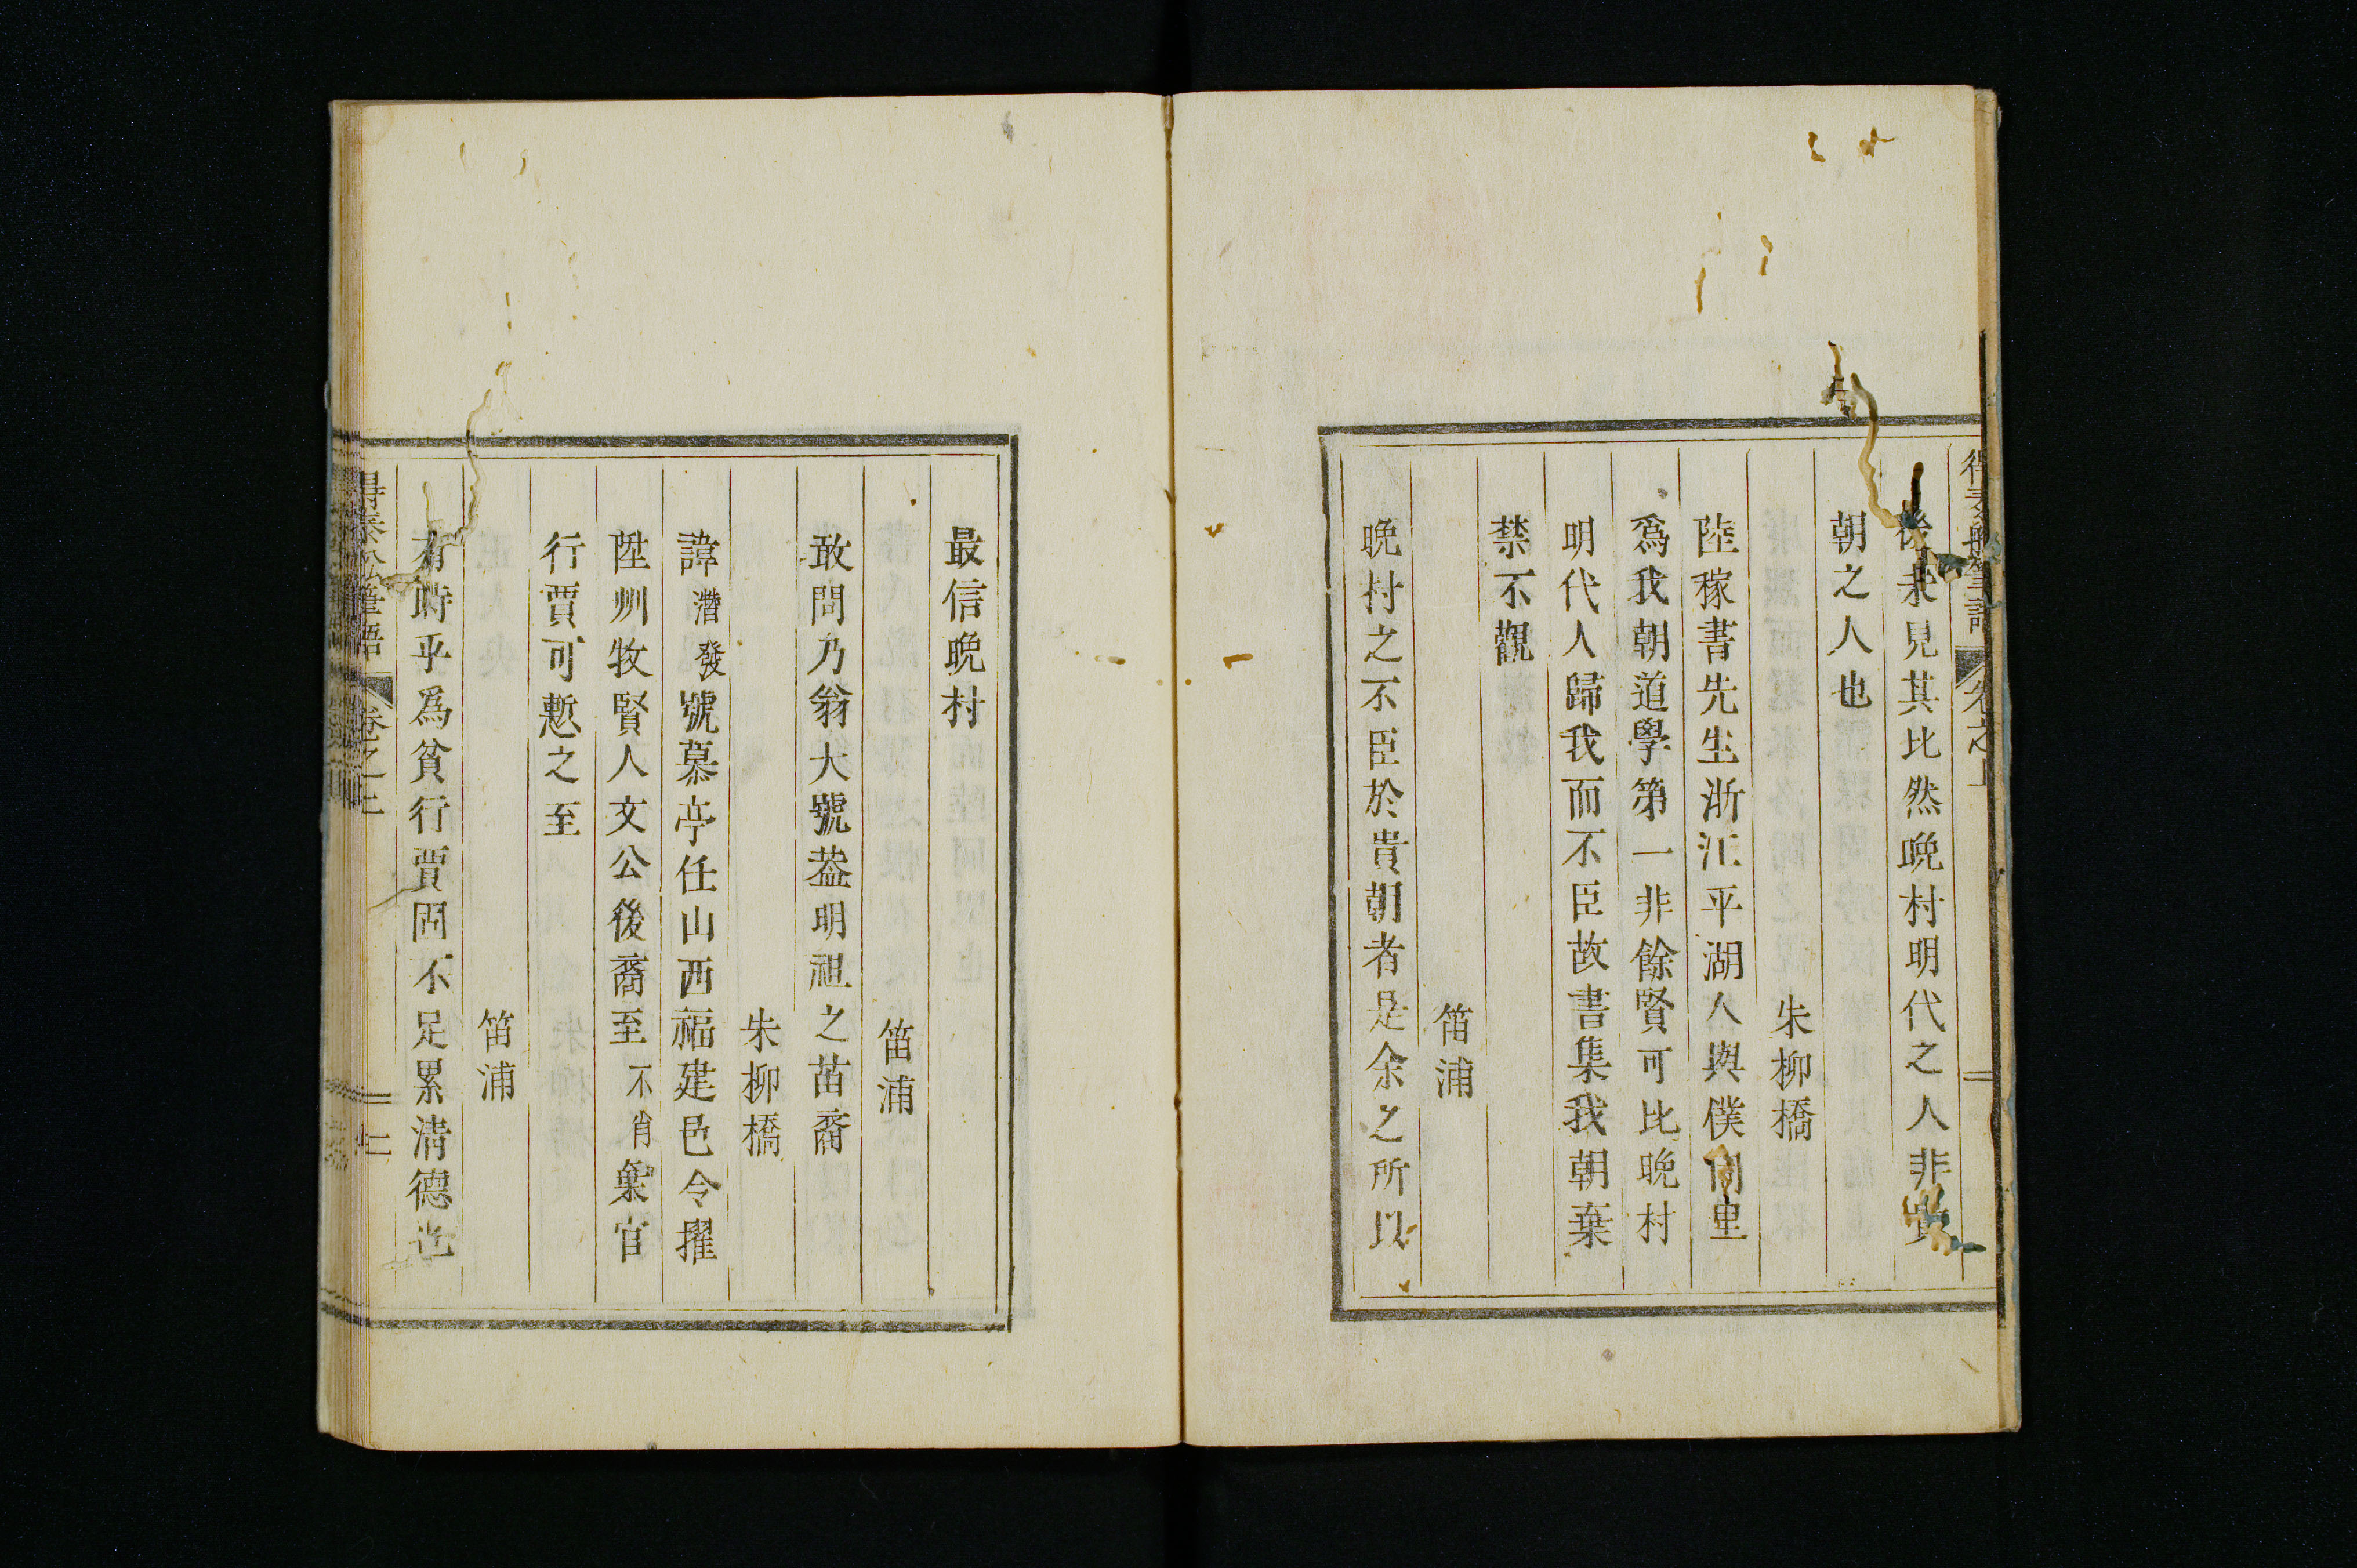 後未見其比然晩村明代之人非貴
朝之人也
朱柳橋
陸稼書先生浙江平湖人與僕同里
爲我朝道學第一非餘賢可比晩村
明代人歸我而不臣故書集我朝棄
禁不觀
笛浦
晩村之不臣於貴朝者是余之所以
最信晩村
笛浦
敢問乃翁大號葢明祖之苗裔
朱柳橋
諱濳發號慕亭任山西福建邑令擢
陞州牧賢人文公後裔至不肖棄官
行賈可慙之至
笛浦
有時乎爲貧行賈固不足累清德也
得泰舩筆語 卷之上